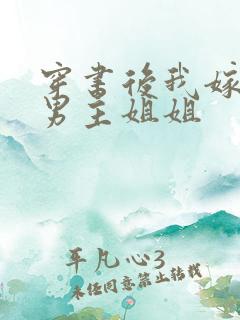 穿书后我嫁
男主姐姐
平凡心3
未经同意禁止转载